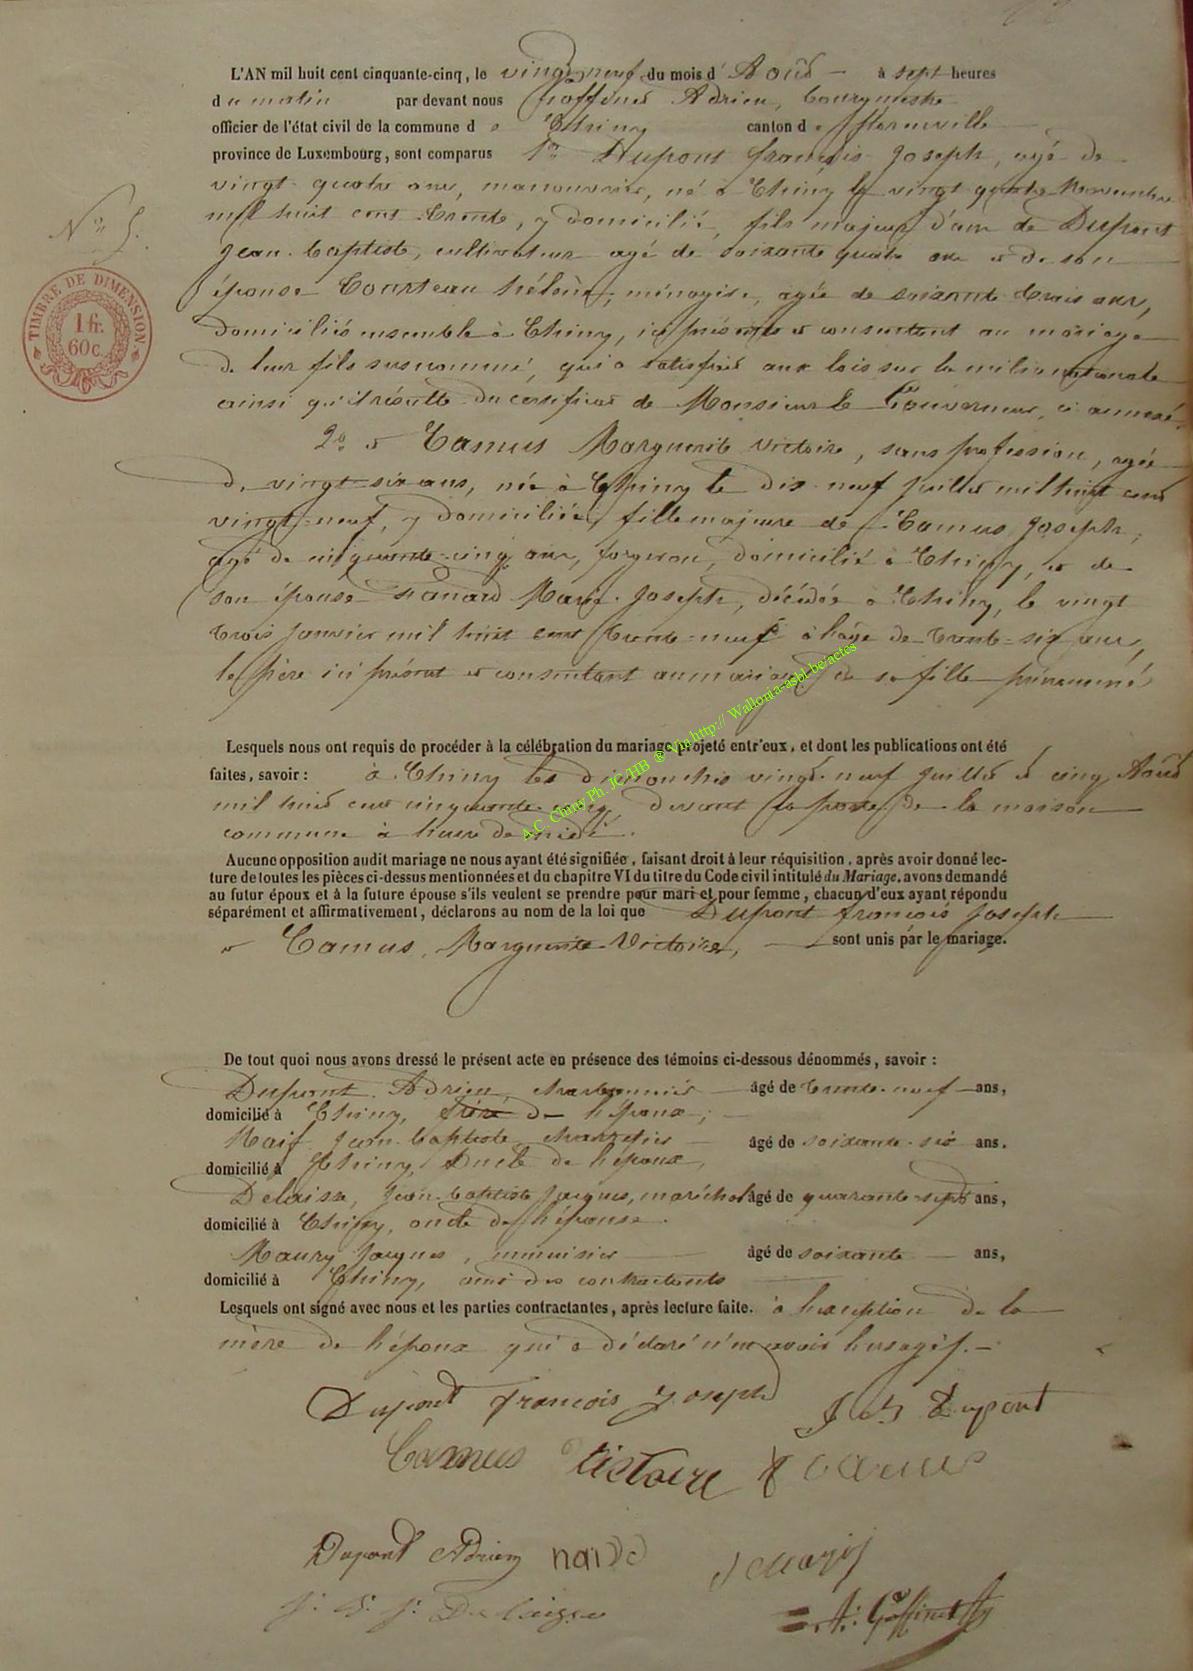 L'AN mil huit cent cinquante-cinq, le vingt neuf du mois d'Août à sept heures
du matin par devant nous Goffinet Adrien, bourgmestre
officier de l'état civil de la commune de Chiny canton de Florenville
province de Luxembourg, sont comparus 1° Dupont françois Joseph, agé de
vingt quatre ans, manouvrier, né à Chiny le vingt quatre Novembre
mil huit cent trente, y domicilié, fils majeur d'ans de Dupont
Jean-baptiste, cultivateur agé de soixante quatre ans et de son
épouse Courteau hélène, ménagère, agée de soixante trois ans,
domiciliés ensemble à Chiny, ici présents et consentant au mariage
N° 5.
TIMBRE DE DIMENSION
1 fr.
60 c.
de leur fils susnommé, qui a satisfait aux lois sur la milice nationale
ainsi qu'il résulte du certificat de Monsieur le Gouverneur, ci annexé.
2° et Camus Marguerite Victoire, sans profession, agée
de vingt-six ans, née à Chiny le dix-neuf juillet mil huit cent
vingt-neuf, y domiciliée, fille majeure de Camus Joseph,
agé de cinquante-cinq ans, forgeron, domicilié à Chiny, et de
son épouse Marie-Joseph, décédée à Chiny, le vingt
trois janvier mil huit cent trente-neuf à l'âge de trente-six ans,
le père ici présent et consentant au mariage de sa fille prénommée
A.C. Chiny Ph. JC/HB ® Via http:// Wallonia-asbl-be/actes
Lesquels nous ont requis de procéder à la célébration du mariage projeté entr'eux, et dont les publications ont été
faites, savoir : à Chiny les dimanches vingt-neuf juillet et cinq Août
mil huit cent cinquante-cinq devant la porte de la maison
commune à heure de midi.
Aucune opposition audit mariage ne nous ayant été signifiée, faisant droit à leur réquisition, après avoir donné lec-
ture de toutes les pièces ci-dessus mentionnées et du chapitre VI du titre du Code civil intitulé du Mariage, avons demandé
au futur époux et à la future épouse s'ils veulent se prendre pour mari et pour femme, chacun d'eux ayant répondu
séparément et affirmativement, déclarons au nom de la loi que Dupont françois Joseph
et Camus, Marguerite Victoire, sont unis par le mariage.
De tout quoi nous avons dressé le présent acte en présence des témoins ci-dessous dénommés, savoir :
Dupont Adrien, charbonnier âgé de trente-neuf ans,
domicilié à Chiny, frère de l'époux;
Naif Jean-baptiste âgé de soixante-six ans.
domicilié à Chiny, Oncle de l'époux,
Delaisse, Jean-baptiste Jacques, maréchal âgé de quarante-sept ans,
domicilié à Chiny, oncle de l'épouse.
Maury Jacques, menuisier âgé de soixante ans,
domicilié à Chiny, ami des contractants
Lesquels ont signé avec nous et les parties contractantes, après lecture faite. à l'exception de la
mère de l'époux qui a déclaré n'en avoir l'usage.
Dupont françois Joseph J Bt Dupont
Camus Victoire J Camus
Dupont Adrien J Maury
J. B. J. Delaisse A. Goffinet